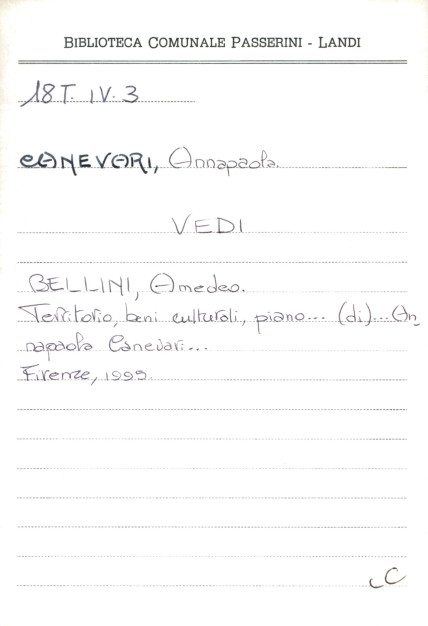 BIBLIOTECA COMUNALE PASSERINI - LANDI
18T. IV. 3
CANEVARI, Annapaola.
VEDI
BELLINI, Amedeo.
Territorio, beni culturali, piano... (di)...An_
napaola Canevari...
Firenze, 1999.